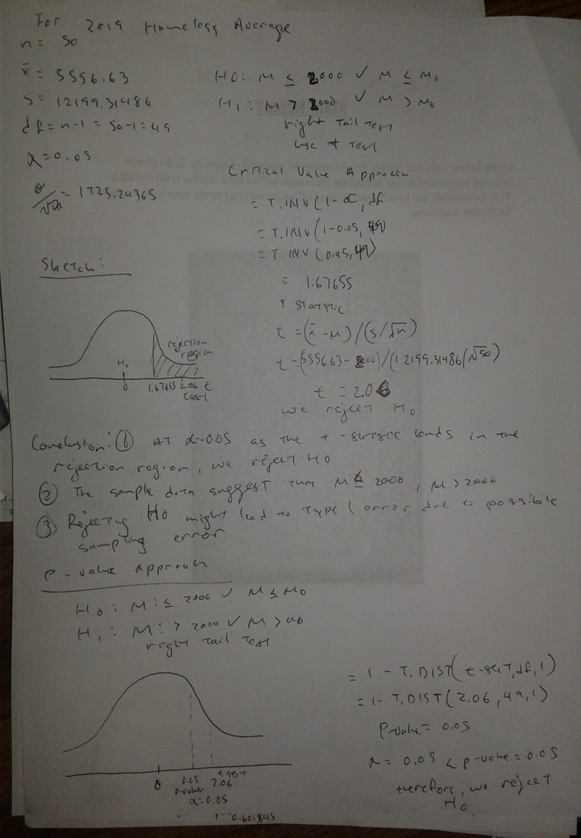 For 2019 Homeless Average
n = 50
x̄ = 5556.63
s = 12199.31486
df = n-1 = 50-1 = 49
α = 0.05
σ/√n = 1725.24365
H0: M ≤ 2000 ✓ M ≤ M0
H1: M > 2000 ✓ M > M0
right tail test
use t test
Critical Value Approach
= T.INV(1-α, df
= T.INV(1-0.05, 49)
= T.INV(0.95, 49)
= 1.67655
t statistic
t = (x̄ - μ)/(s/√n)
t = (5556.63 - 2000)/(12199.31486/√50)
t = 2.06
we reject H0
Sketch:
rejection
region
H0
1.67655 2.06 t
test
Conclusion: ① At α=0.05 as the t-statistic lands in the
rejection region, we reject H0
② The sample data suggest that M ≤ 2000, M > 2000
③ Rejecting H0 might lead to type 1 error due to possible
sampling error
P-value approach
H0: M: ≤ 2000 ✓ M ≤ M0
H1: M: > 2000 ✓ M > M0
right tail test
0
0.05 t stat
p-value 2.06
α=0.05
= 1 - T.DIST(t-stat, df, 1)
= 1 - T.DIST(2.06, 49, 1)
P-value = 0.05
α = 0.05 < p-value = 0.05
therefore, we reject
H0.